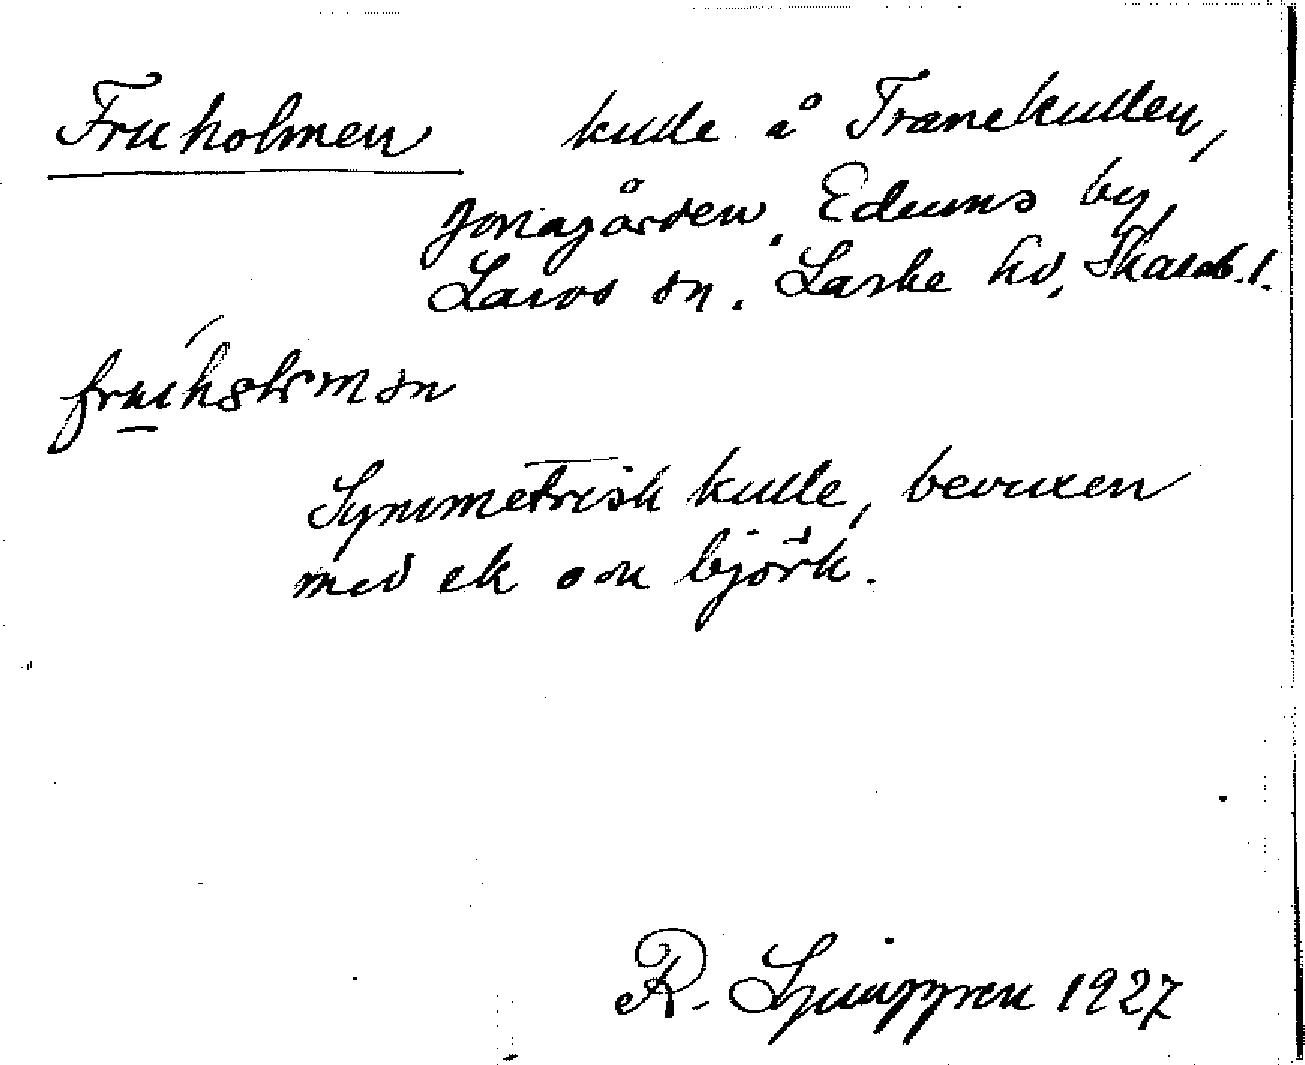 Fruholmen kulle å Tranekullen,
Jonagården, Edums by,
Larvs sn. Laske hd, Skarab. l.
Symmetrisk kulle, bevuxen
med ek och björk.
R. Ljunggren 1927